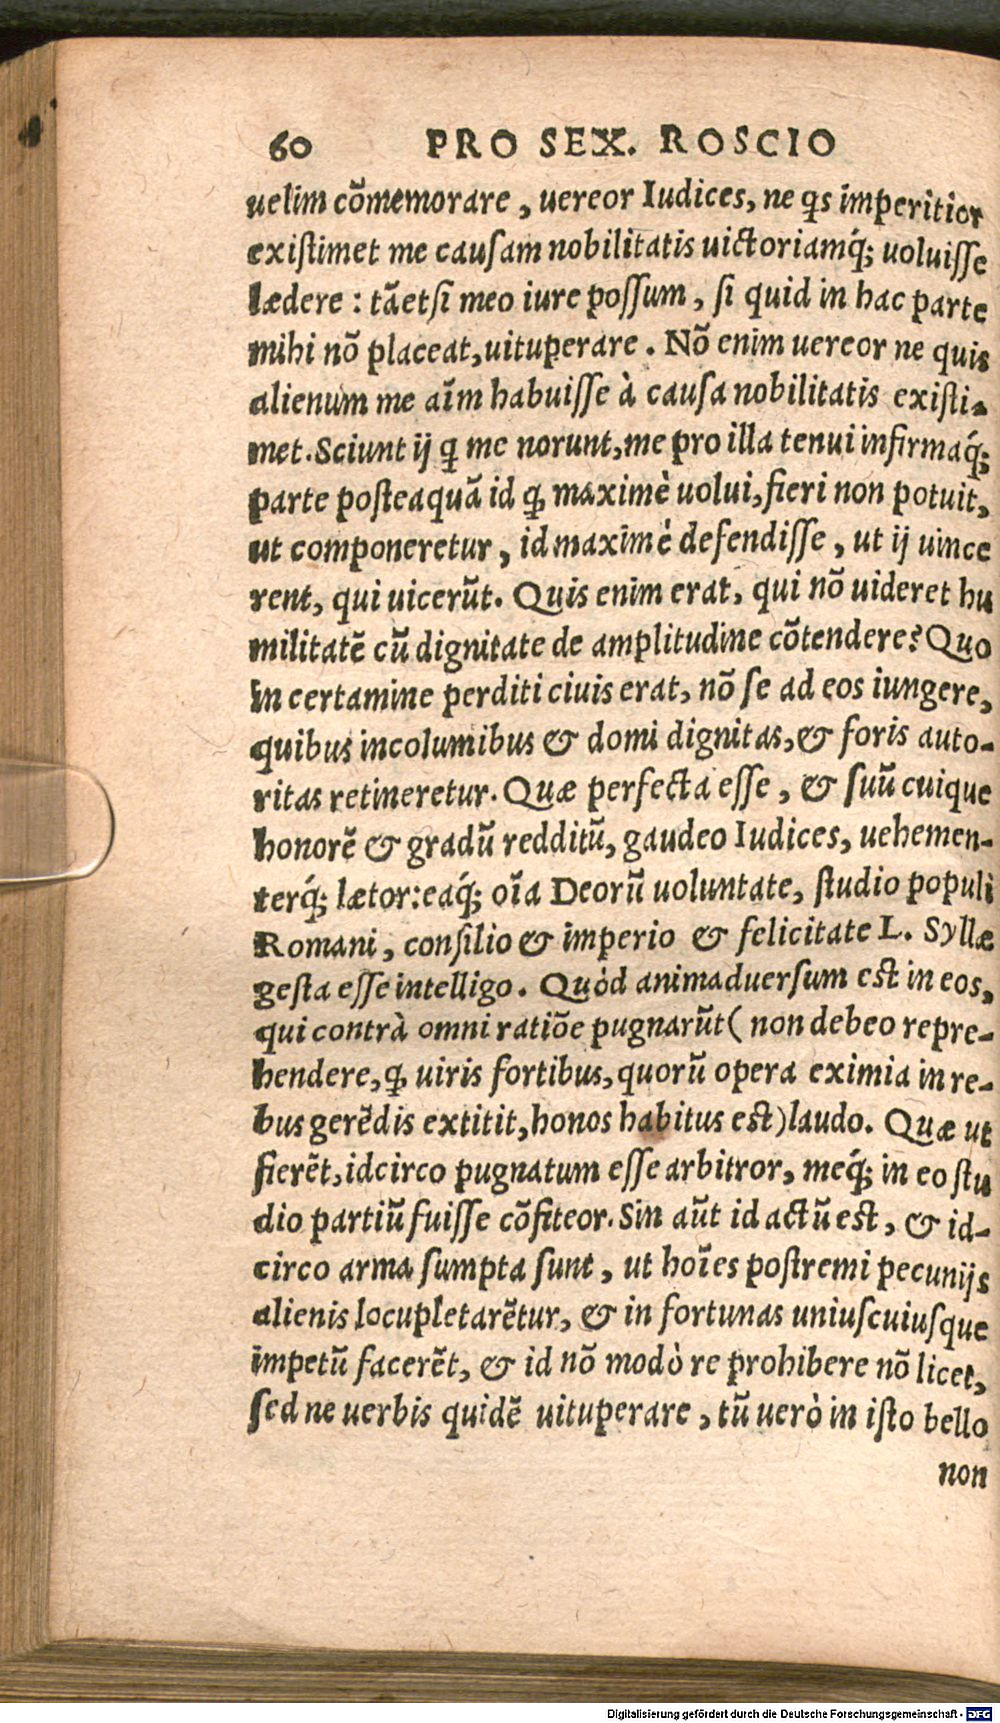 60 PRO SEX. ROSCIO
uelim cõmemorare, uereor Iudices, ne qs imperitior
existimet me causam nobilitatis uictoriamq́; uoluisse
lædere: tãetsi meo iure possum, si quid in hac parte
mihi nõ placeat, uituperare. Nõ enim uereor ne quis
alienum me aĩm habuisse à causa nobilitatis existi-
met. Sciunt ij q̃ me norunt, me pro illa tenui infirmaq́;
parte posteaquã id q̃ maximè uolui, fieri non potuit,
ut componeretur, id maximè defendisse, ut ij uince
rent, qui uicerũt. Quis enim erat, qui nõ uideret hu
militatẽ cũ dignitate de amplitudine cõtendere? Quo
in certamine perditi ciuis erat, nõ se ad eos iungere,
quibus incolumibus & domi dignitas, & foris auto-
ritas retineretur. Quæ perfecta esse, & suũ cuique
honorẽ & gradũ redditũ, gaudeo Iudices, uehemen-
terq́; lætor: eaq́; oĩa Deorũ uoluntate, studio populi
Romani, consilio & imperio & felicitate L. Syllæ
gesta esse intelligo. Quòd animaduersum est in eos,
qui contrà omni ratiõe pugnarũt (non debeo repre-
hendere, q̃ uiris fortibus, quorũ opera eximia in re-
bus gerẽdis extitit, honos habitus est) laudo. Quæ ut
fierẽt, idcirco pugnatum esse arbitror, meq́; in eo stu
dio partiũ fuisse cõfiteor. Sin aũt id actũ est, & id-
circo arma sumpta sunt, ut hoĩes postremi pecunijs
alienis locupletarẽtur, & in fortunas uniuscuiusque
impetũ facerẽt, & id nõ modò re prohibere nõ licet,
sed ne uerbis quidẽ uituperare, tũ uerò in isto bello
non
Digitalisierung gefördert durch die Deutsche Forschungsgemeinschaft - DFG